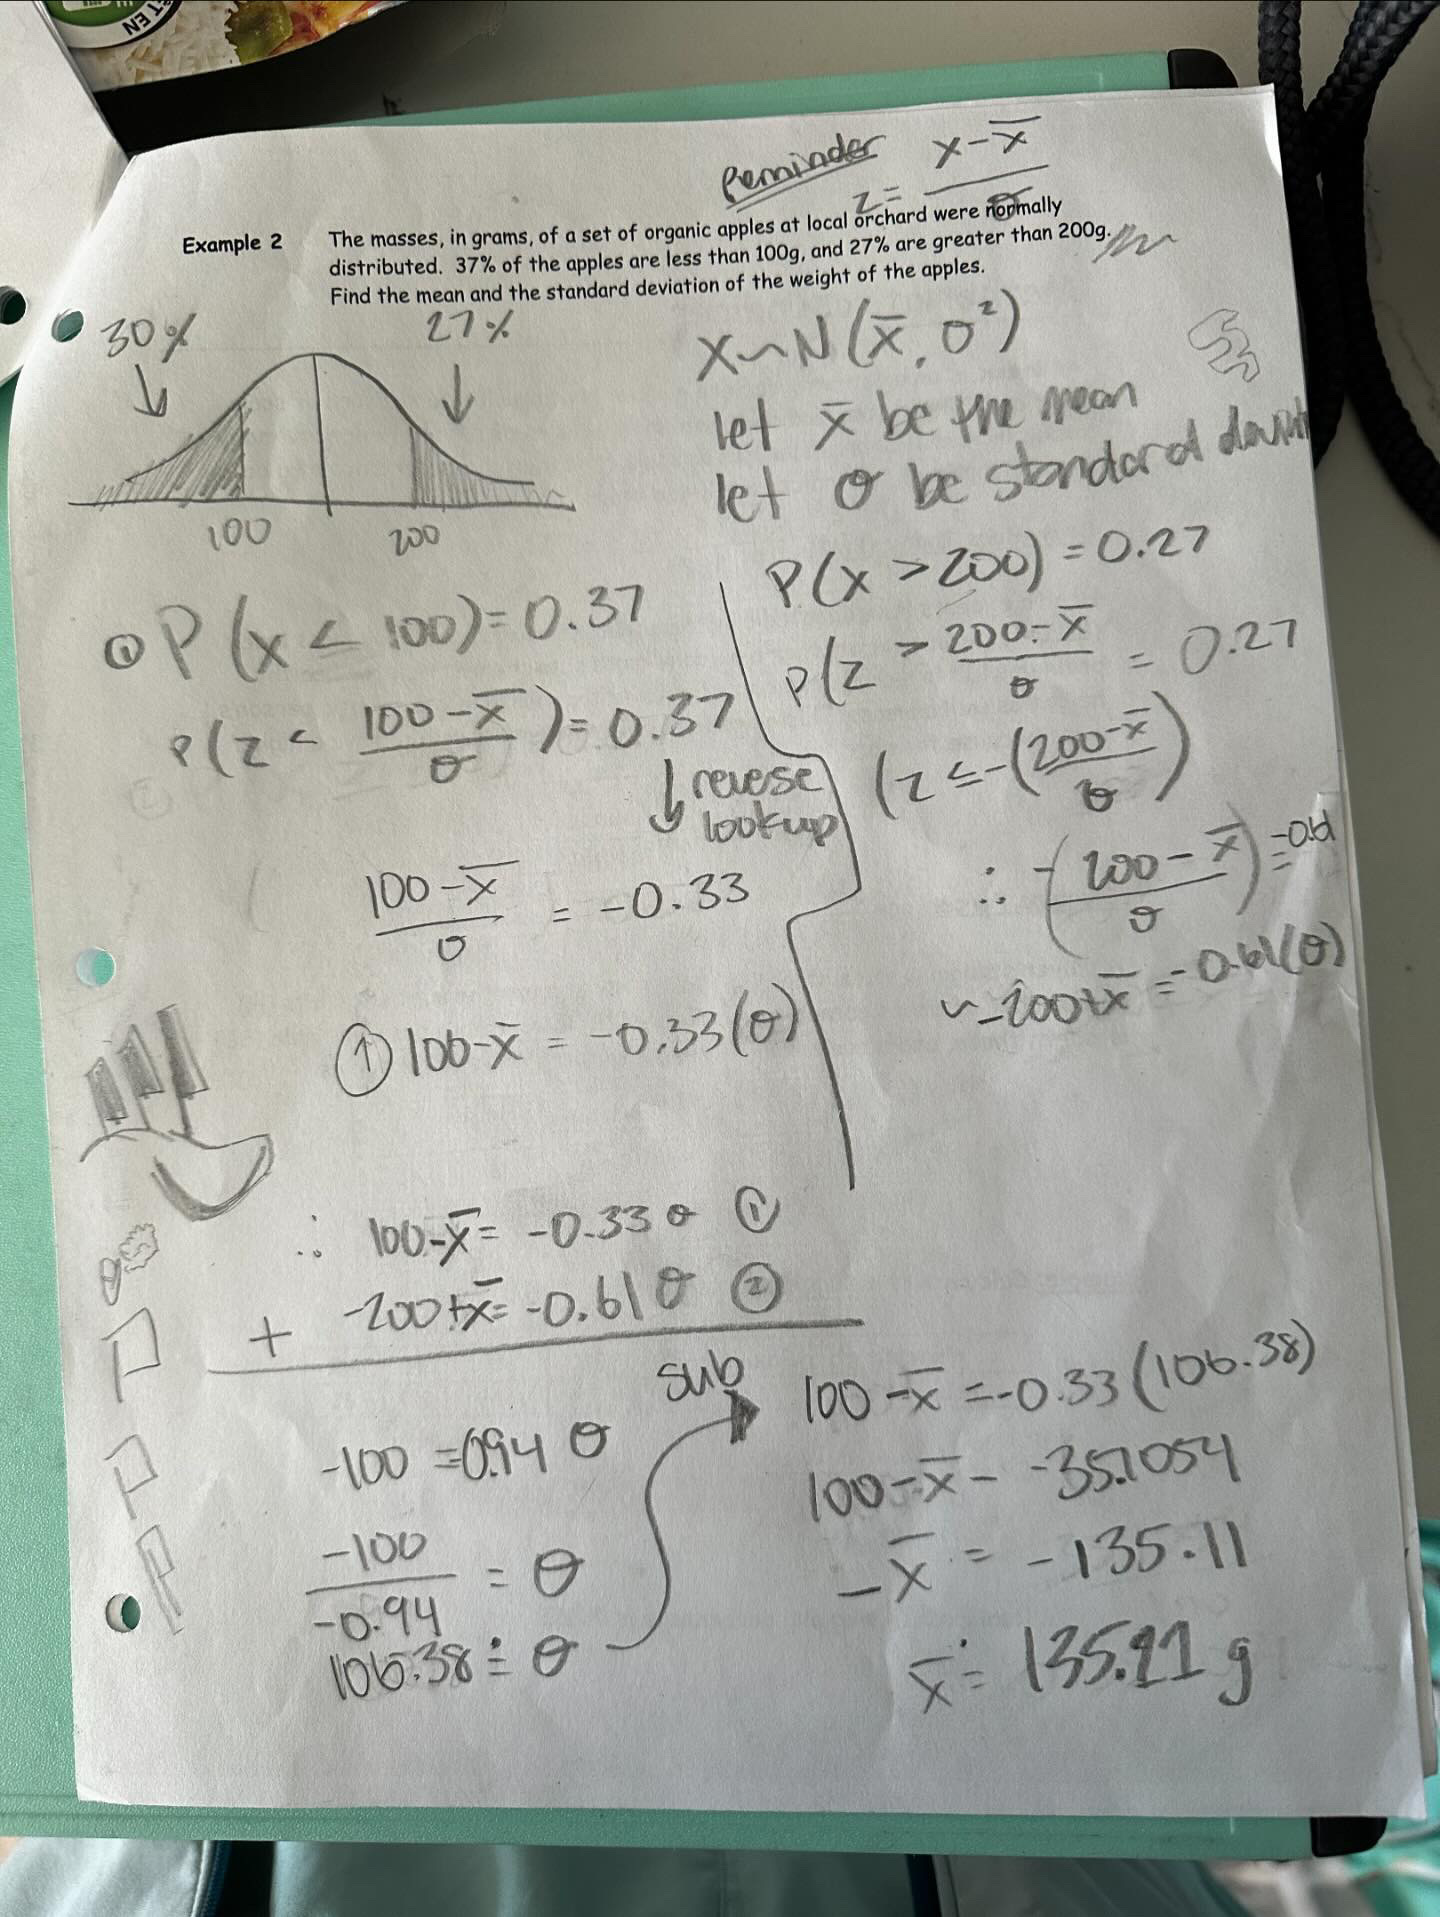 T EN
Reminder z = x - x̄ / σ
Example 2 The masses, in grams, of a set of organic apples at local orchard were normally
distributed. 37% of the apples are less than 100g, and 27% are greater than 200g.
Find the mean and the standard deviation of the weight of the apples.
30% 27%
100 200
X~N(x̄, σ²)
let x̄ be the mean
let σ be standard
① P(x < 100) = 0.37
P(z < 100 - x̄ / σ) = 0.37
↓ reverse
lookup
100 - x̄ / σ = -0.33
① 100 - x̄ = -0.33(σ)
P(x > 200) = 0.27
P(z > 200 - x̄ / σ = 0.27
(z ≤ -(200 - x̄ / σ)
∴ -(200 - x̄ / σ) = -0.61
-200 + x̄ = -0.61(σ)
∴ 100 - x̄ = -0.33σ ①
+ -200 + x̄ = -0.61σ ②
-100 = 0.94 σ
-100 / -0.94 = σ
106.38 ≐ σ
sub
100 - x̄ = -0.33(106.38)
100 - x̄ - -35.1054
-x̄ = -135.11
x̄ ≐ 135.11 g